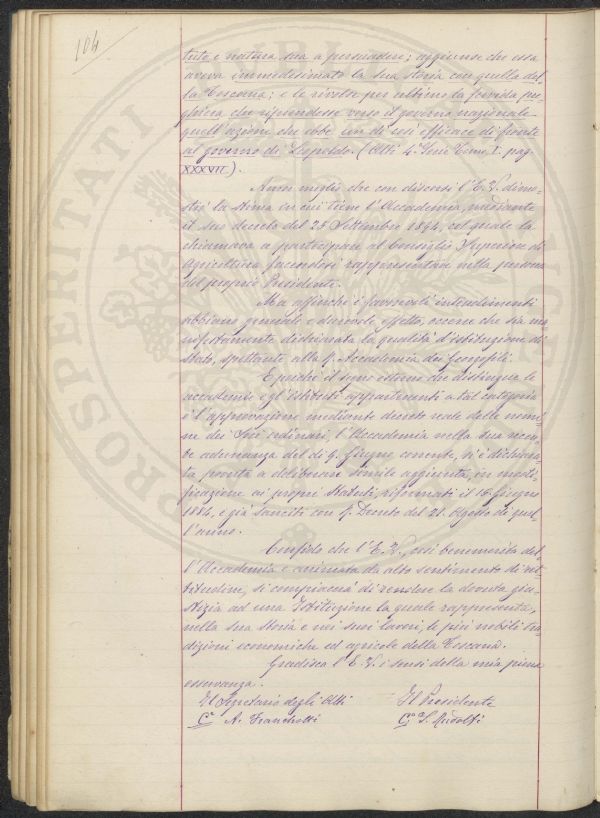 104
tuto e natura sua a persuadere; aggiunse che essa
aveva immedesimato la sua storia con quella del-
la Toscana; e le rivolse per ultimo la fervida pre-
ghiera che riprendesse verso il governo nazionale
quell'azione che ebbe un dì così efficace di fronte
al governo di Leopoldo. (Atti 4ª Serie Tomo I. pag.
XXXVII).
Non meglio che con discorsi l'E. V. dimo-
strò la stima in cui tiene l'Accademia, mediante
il suo decreto del 28 Settembre 1894, col quale la
chiamava a partecipare al Consiglio Superiore di
Agricoltura facendosi rappresentare nella persona
del proprio Presidente.
Ma affinchè i favorevoli intendimenti
abbiano generale e durevole effetto, occorre che sia ma-
nifestamente dichiarata la qualità d'istituzione di
Stato, spettante alla R. Accademia dei Georgofili.
E poichè il segno esterno che distingue le
accademie e gl'Istituti appartenenti a tal categoria
è l'approvazione mediante decreto reale delle nomi-
ne dei Soci ordinari, l'Accademia nella sua recen-
te adunanza del dì 9. Giugno corrente, si è dichiara-
ta pronta a deliberare simile aggiunta, in modi-
ficazione ai propri Statuti, riformati il 15 Giugno
1884, e già sanciti con R. Decreto del 21. Agosto di quel-
l'anno.
Confido che l'E. V., così benemerita del-
l'Accademia e animata da alto sentimento di ret-
titudine, si compiacerà di rendere la dovuta giu-
stizia ad una Istituzione la quale rappresenta,
nella sua storia e nei suoi lavori, le più nobili tra-
dizioni economiche ed agricole della Toscana.
Gradisca l'E. V. i sensi della mia piena
osservanza.
Il Segretario degli Atti Il Presidente
C.º A. Franchetti C.º L. Ridolfi